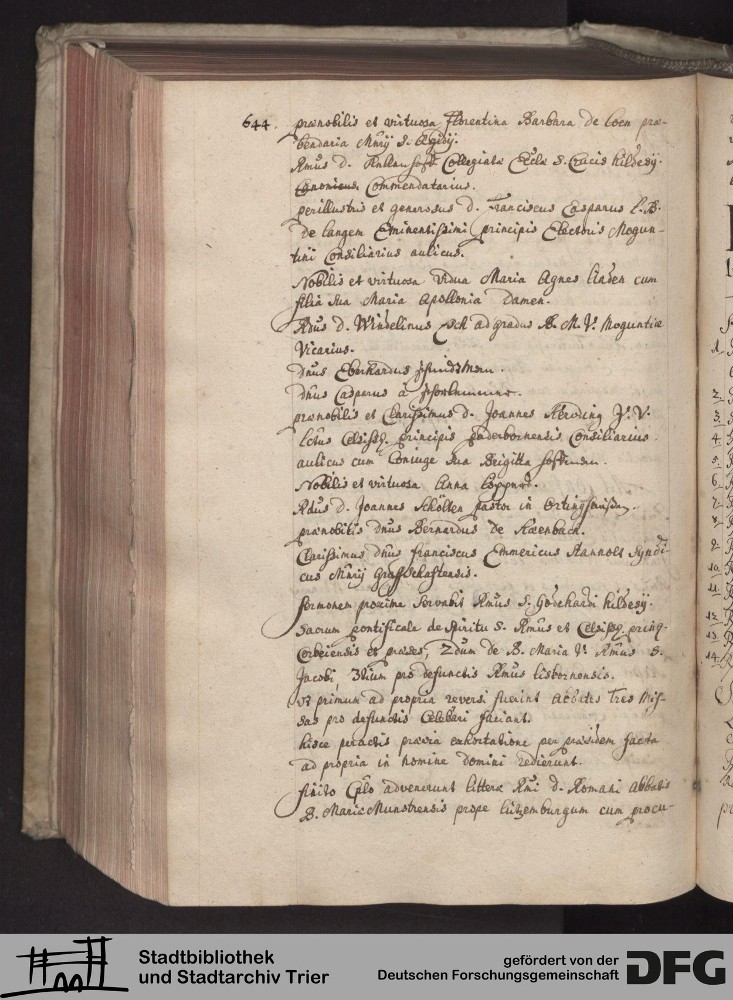 644. prænobilis et virtuosa Florentina Barbara de Loen præ-
bendaria Mñrij S. Ægidij.
Rmus D. Collegiatæ Ecclæ S. Crucis Hildesij.
Canonicus Commendatarius.
perillustris et generosus D. Franciscus Casparus L. B.
de Langem Eminentissimi principis Electoris Mogun-
tini Consiliarius aulicus.
Nobilis et virtuosa vidua Maria Agnes Linden cum
filia sua Maria Apollonia Damen.
Rdus D. Windelinus ad gradus B. M. V. Moguntiæ
Vicarius.
Dnus Eberhardus
Dnus Casperus à
prænobilis et Clarissimus D. Joannes Herding J. V.
Lctus Celsiss. principis paderbornensis Consiliarius
aulicus cum Coniuge sua Brigitta
Nobilis et virtuosa Anna
Rdus D. Joannes Schölten pastor in
prænobilis Dnus Bernardus de
Clarissimus Dnus Franciscus Emmericus Hannolt Syndi-
cus Mñrij Graffschaftensis.
Sermonem proxime servabit Rmus S. Godehardi Hildesij.
Sacrum pontificale de Spiritu S. Rmus et Celsiss. princ.
Corbeiensis et præses, 2dum de B. Maria V. Rmus S.
Jacobi, 3tium pro defunctis Rmus Lisbornensis.
Ut primum ad propria reversi fuerint Abbates Tres Mis-
sas pro defunctis Celebrari faciant.
hisce peractis prævia exhortatione per præsidem facta
ad propria in nomine Domini redierunt.
finito Cplo advenerunt litteræ Rmi D. Romani Abbatis
B. Mariæ Munstrensis prope Lützemburgum cum procu-
Stadtbibliothek
und Stadtarchiv Trier
gefördert von der
Deutschen Forschungsgemeinschaft
DFG